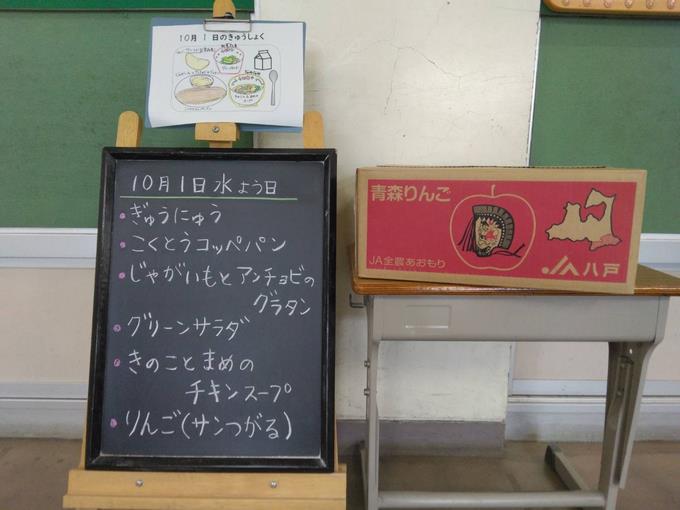 10月1日のきゅうしょく
10月1日水よう日
ぎゅうにゅう
こくとうコッペパン
じゃがいもとアンチョビの
グラタン
グリーンサラダ
きのことまめの
チキンスープ
りんご(サンつがる)
青森りんご
JA全農あおもり
JA八戸